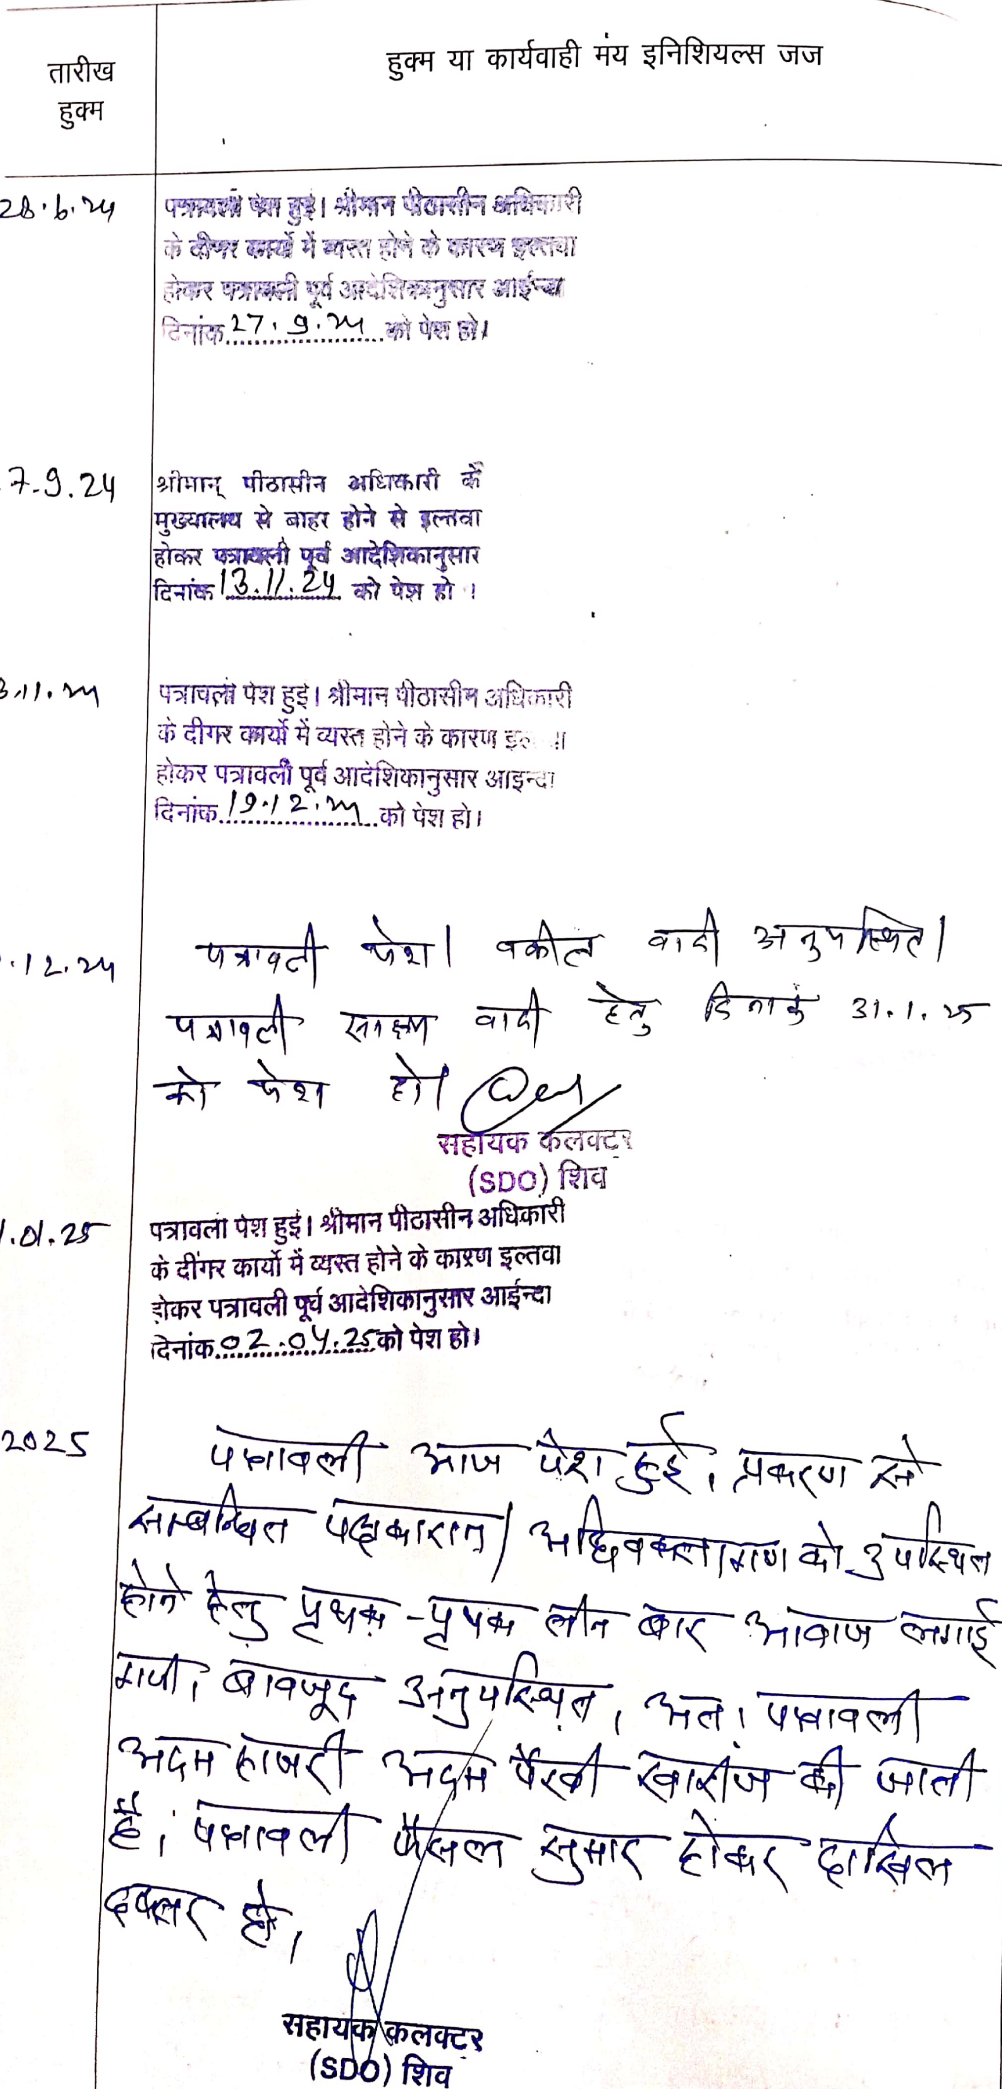 तारीख
हुक्म
हुक्म या कार्यवाही मंय इनिशियल्स जज
28.6.24
पत्रावली पेश हुई। श्रीमान पीठासीन अधिकारी
के दीगर कार्यो में व्यस्त होने के कारण इल्तवा
होकर पत्रावली पूर्व आदेशिकानुसार आईन्दा
दिनांक 27.9.24 को पेश हो।
7.9.24
श्रीमान् पीठासीन अधिकारी के
मुख्यालय से बाहर होने से इल्तवा
होकर पत्रावली पूर्व आदेशिकानुसार
दिनांक 13.11.24 को पेश हो ।
3.11.24
पत्रावली पेश हुई। श्रीमान पीठासीन अधिकारी
के दीगर कार्यो में व्यस्त होने के कारण
होकर पत्रावली पूर्व आदेशिकानुसार आइन्दा
दिनांक 19.12.24 को पेश हो।
.12.24
पत्रावली पेश। वकील वादी अनुपस्थित।
पत्रावली साक्ष्य वादी हेतु दिनांक 31.1.25
को पेश हो।
सहायक कलक्टर
(SDO) शिव
1.01.25
पत्रावली पेश हुई। श्रीमान पीठासीन अधिकारी
के दीगर कार्यो में व्यस्त होने के कारण इल्तवा
होकर पत्रावली पूर्व आदेशिकानुसार आईन्दा
दिनांक 02.04.25 को पेश हो।
2025
पत्रावली आज पेश हुई। प्रकरण से
सम्बन्धित पक्षकारान/अधिवक्तागण को उपस्थित
होने हेतु पृथक-पृथक तीन बार आवाज लगाई
गयी। बावजूद अनुपस्थित। अतः पत्रावली
अदम हाजरी अदम पैरवी खारीज की जाती
है। पत्रावली फैसल सुमार होकर दाखिल
दफ्तर हो।
सहायक कलक्टर
(SDO) शिव